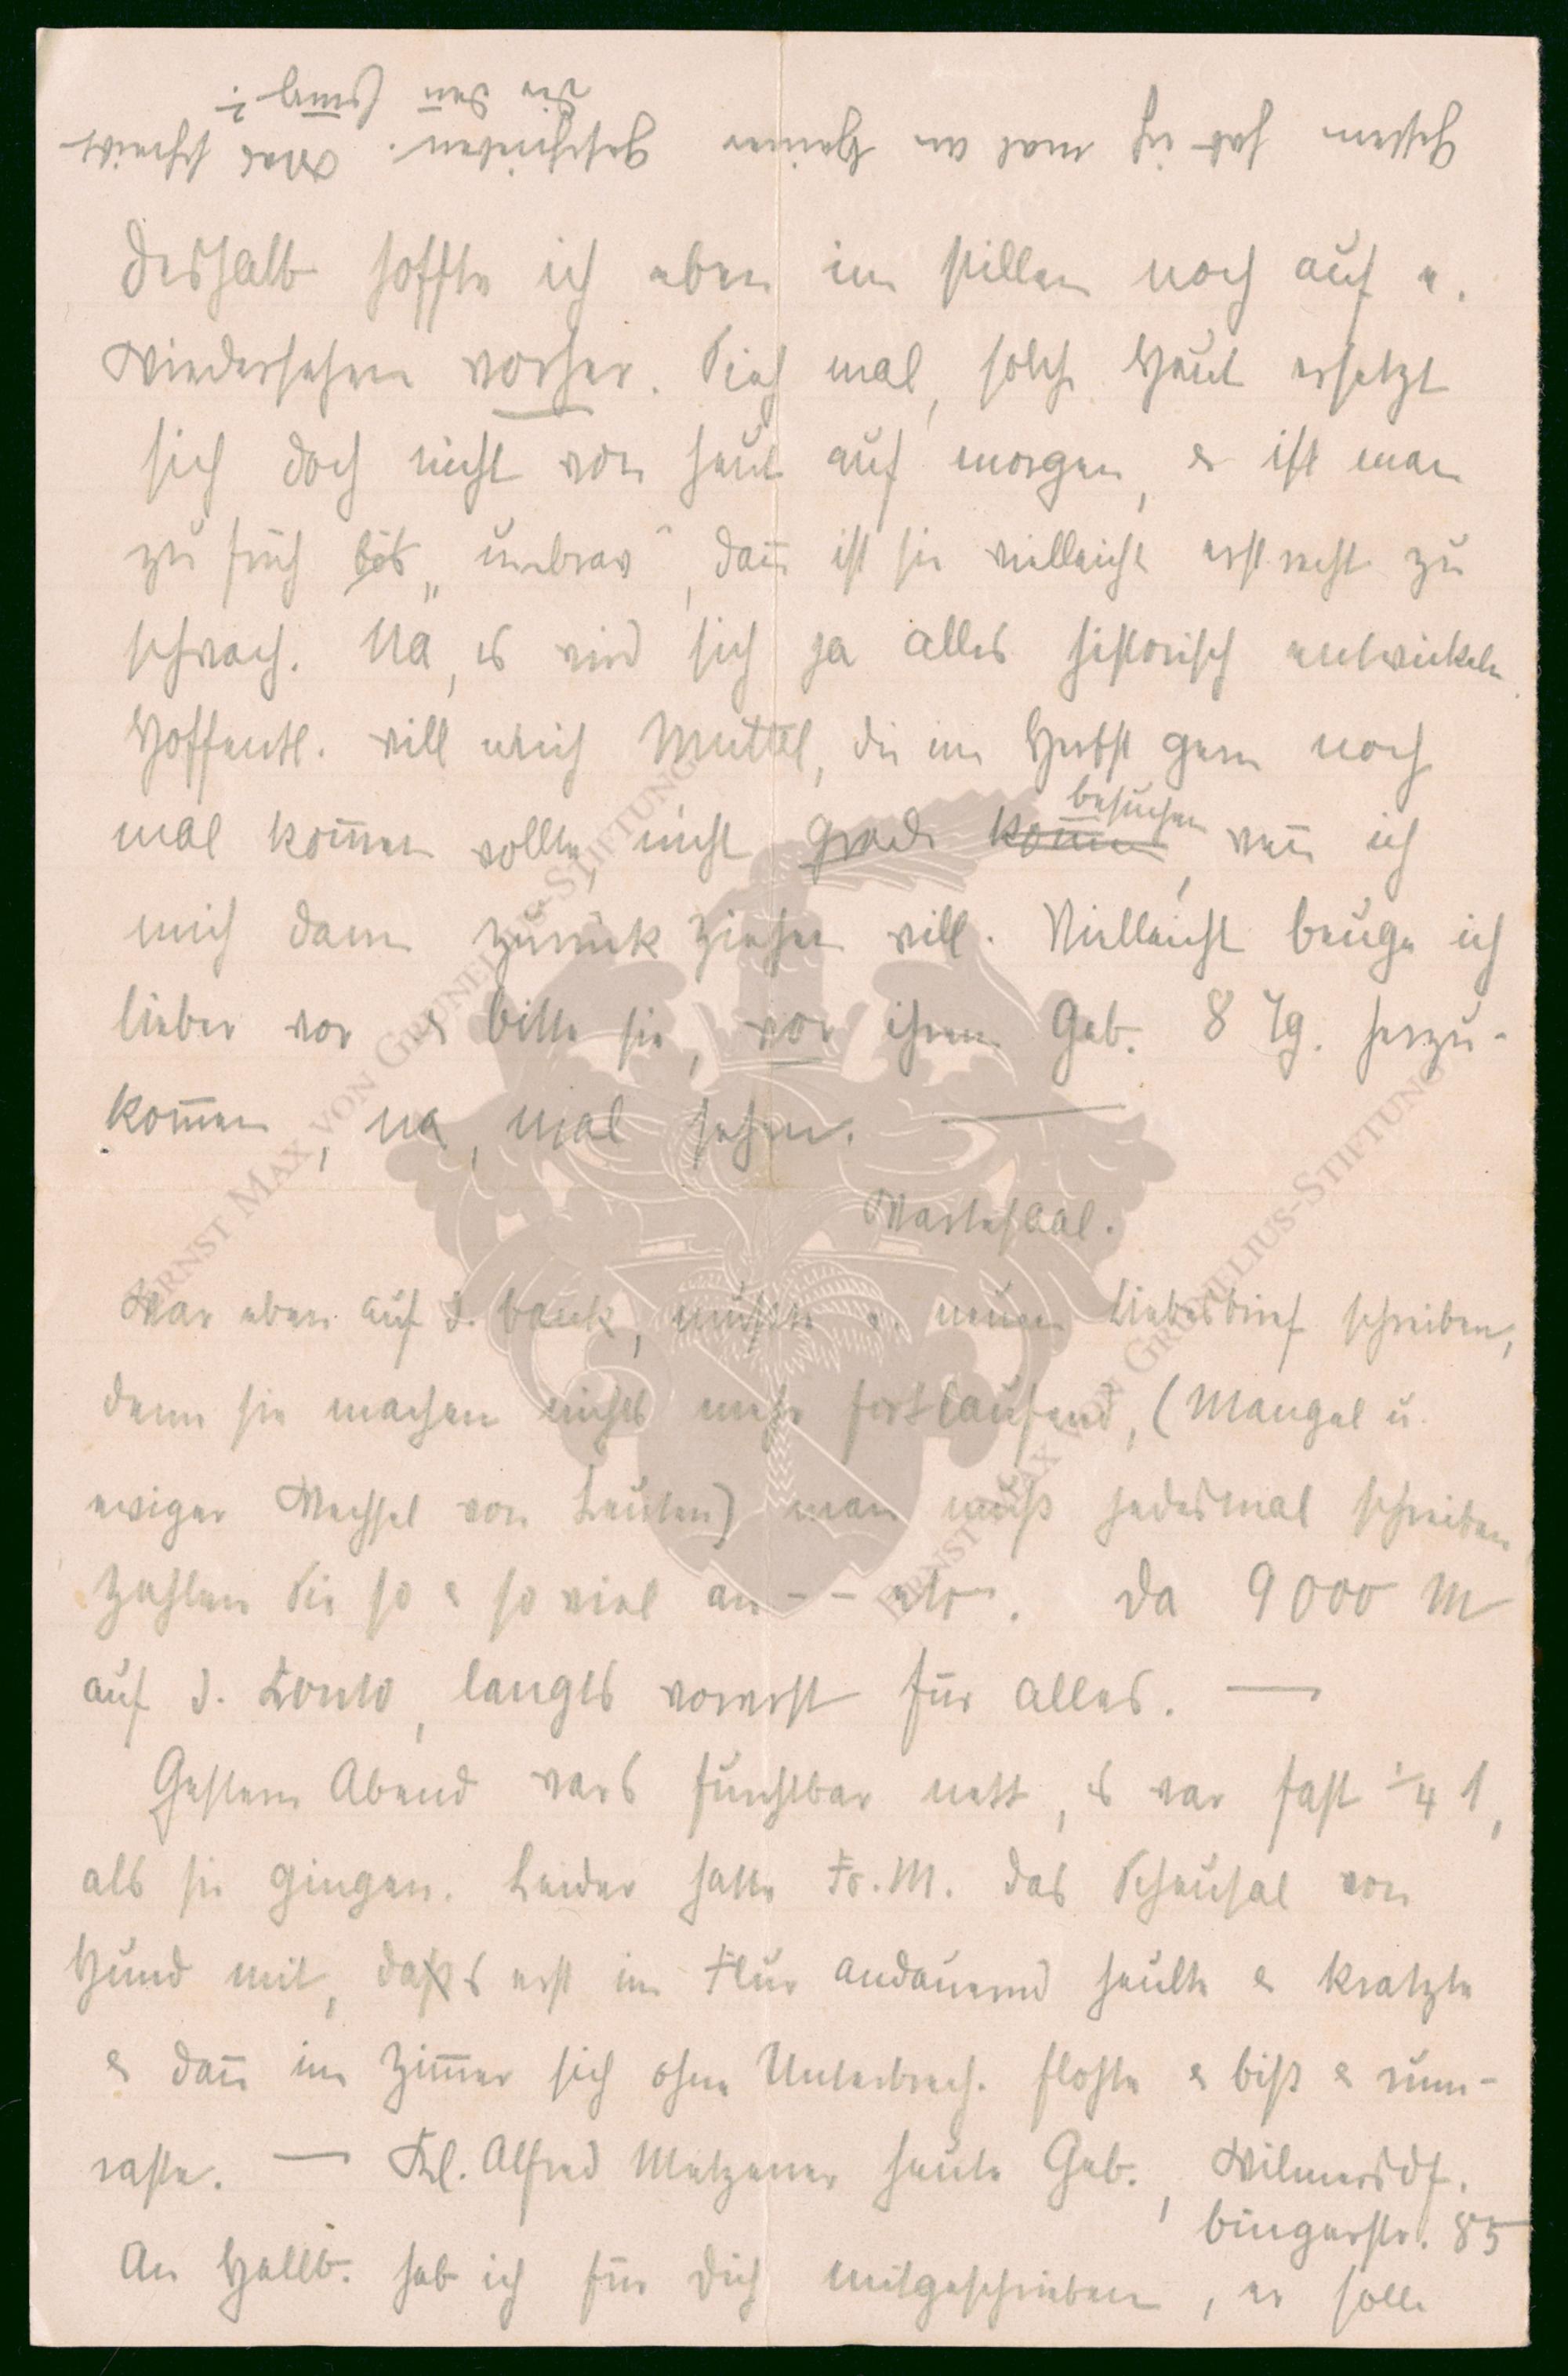 Gestern hab ich mal an Heiner geschrieben. Was schreibt
die denn
deshalb hoffte ich eben im stillen noch auf e.
Wiedersehen vorher. Sieh mal, solche Haut ersetzt
sich doch nicht von heut auf morgen, & ist man
zu früh bös „unbrav“, dann ist sie vielleicht erst recht zu
schwach. Na, es wird sich ja alles historisch entwickeln.
Hoffentl. will mich Muttel, die im Herbst gern noch
mal kommen wollte, nicht grade besuchen, wenn ich
mich dann zurück ziehen will. Vielleicht beuge ich
lieber vor & bitte sie, vor ihrem Geb. 8 Tg. herzu-
kommen, na, mal sehen. —
Wartesaal.
War eben auf d. Bank, mußte e. neuen Liebesbrief schreiben,
denn sie machen nichts mehr fortlaufend, (Mangel u.
ewiger Wechsel von Leuten) man muß jedesmal schreiben
zahlen Sie so & so viel an - - etc. Da 9000 M
auf d. Konto, langts vorerst für alles. —
Gestern Abend wars furchtbar nett, es war fast 1/4 1,
als sie gingen. Leider hatte Fr. M. das Scheusal von
Hund mit, das erst im Flur andauernd heulte & kratzte
& dann im Zimmer sich ohne Unterbrech. flohte & biß & rum-
raste. — Kl. Alfred Metzener heute Geb., Wilmersdf.
Bingerstr. 85
An Hallb. hab ich für Dich mitgeschrieben, er solle
ERNST MAX VON GRUNELIUS-STIFTUNG
ERNST MAX VON GRUNELIUS-STIFTUNG